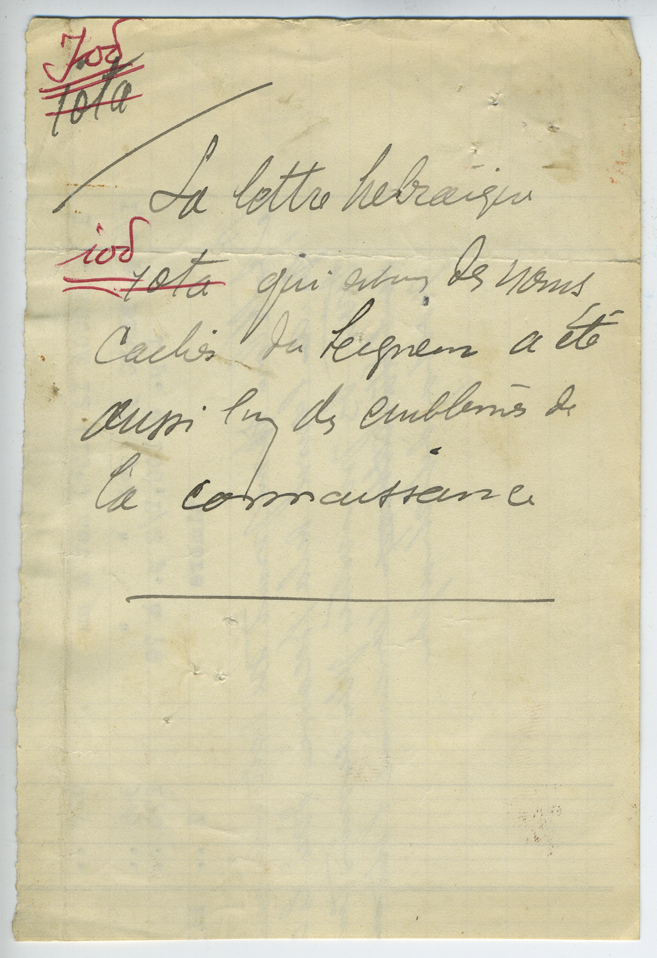 Iod
iota
La lettre hebraïque
iod
iota qui des noms
Cachés du Seigneur a été
aussi l'un des emblèmes de
la connaissance